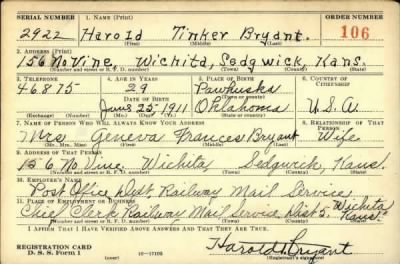 SERIAL NUMBER 1. NAME (Print) ORDER NUMBER
2922 Harold Tinker Bryant. 106
(First) (Middle) (Last)
2. ADDRESS (Print)
156 No Vine Wichita, Sedgwick, Kans.
(Number and street or R. F. D. number) (Town) (County) (State)
3. TELEPHONE 4. AGE IN YEARS 5. PLACE OF BIRTH 6. COUNTRY OF CITIZENSHIP
46875 29 Pawhuska
DATE OF BIRTH (Town or county)
25 1911 Oklahoma U.S.A.
(Exchange) (Number) (Mo.) (Day) (Yr.) (State or country)
7. NAME OF PERSON WHO WILL ALWAYS KNOW YOUR ADDRESS 8. RELATIONSHIP OF THAT PERSON
Mrs Geneva Frances Bryant Wife
(Mr., Mrs., Miss) (First) (Middle) (Last)
9. ADDRESS OF THAT PERSON
156 No. Vine, Wichita Sedgwick, Kans.
(Number and street or R. F. D. number) (Town) (County) (State)
10. EMPLOYER'S NAME
Post Office Dept. Railway Mail Service
11. PLACE OF EMPLOYMENT OR BUSINESS
Chief Clerk Railway Mail Service Dist 2. Wichita Kans.
(Number and street or R. F. D. number) (Town) (County) (State)
I AFFIRM THAT I HAVE VERIFIED ABOVE ANSWERS AND THAT THEY ARE TRUE.
REGISTRATION CARD
D. S. S. Form 1 Harold T Bryant
(Registrant's signature)